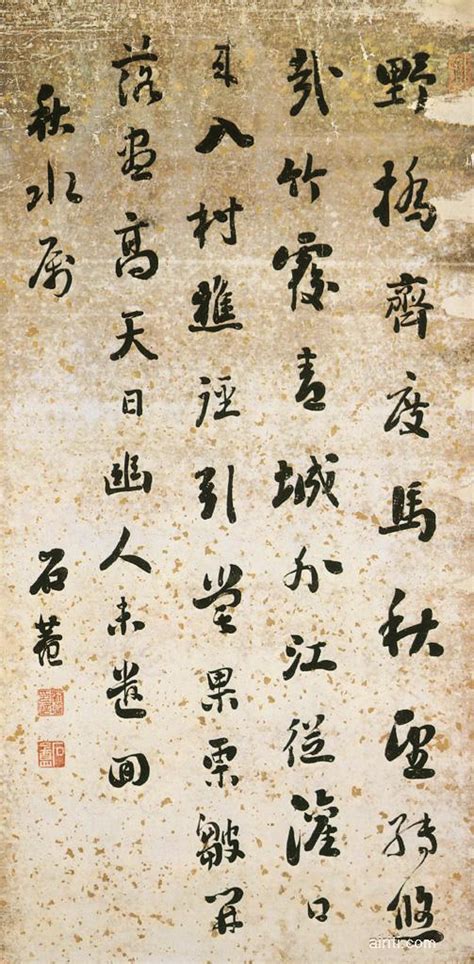 野橋齊度馬秋望轉悠
哉竹覆青城外江從灌口
來入村樵徑引嘗果栗皺開
落盡高天日幽人未遣回
秋水屬
石菴
airiti.com